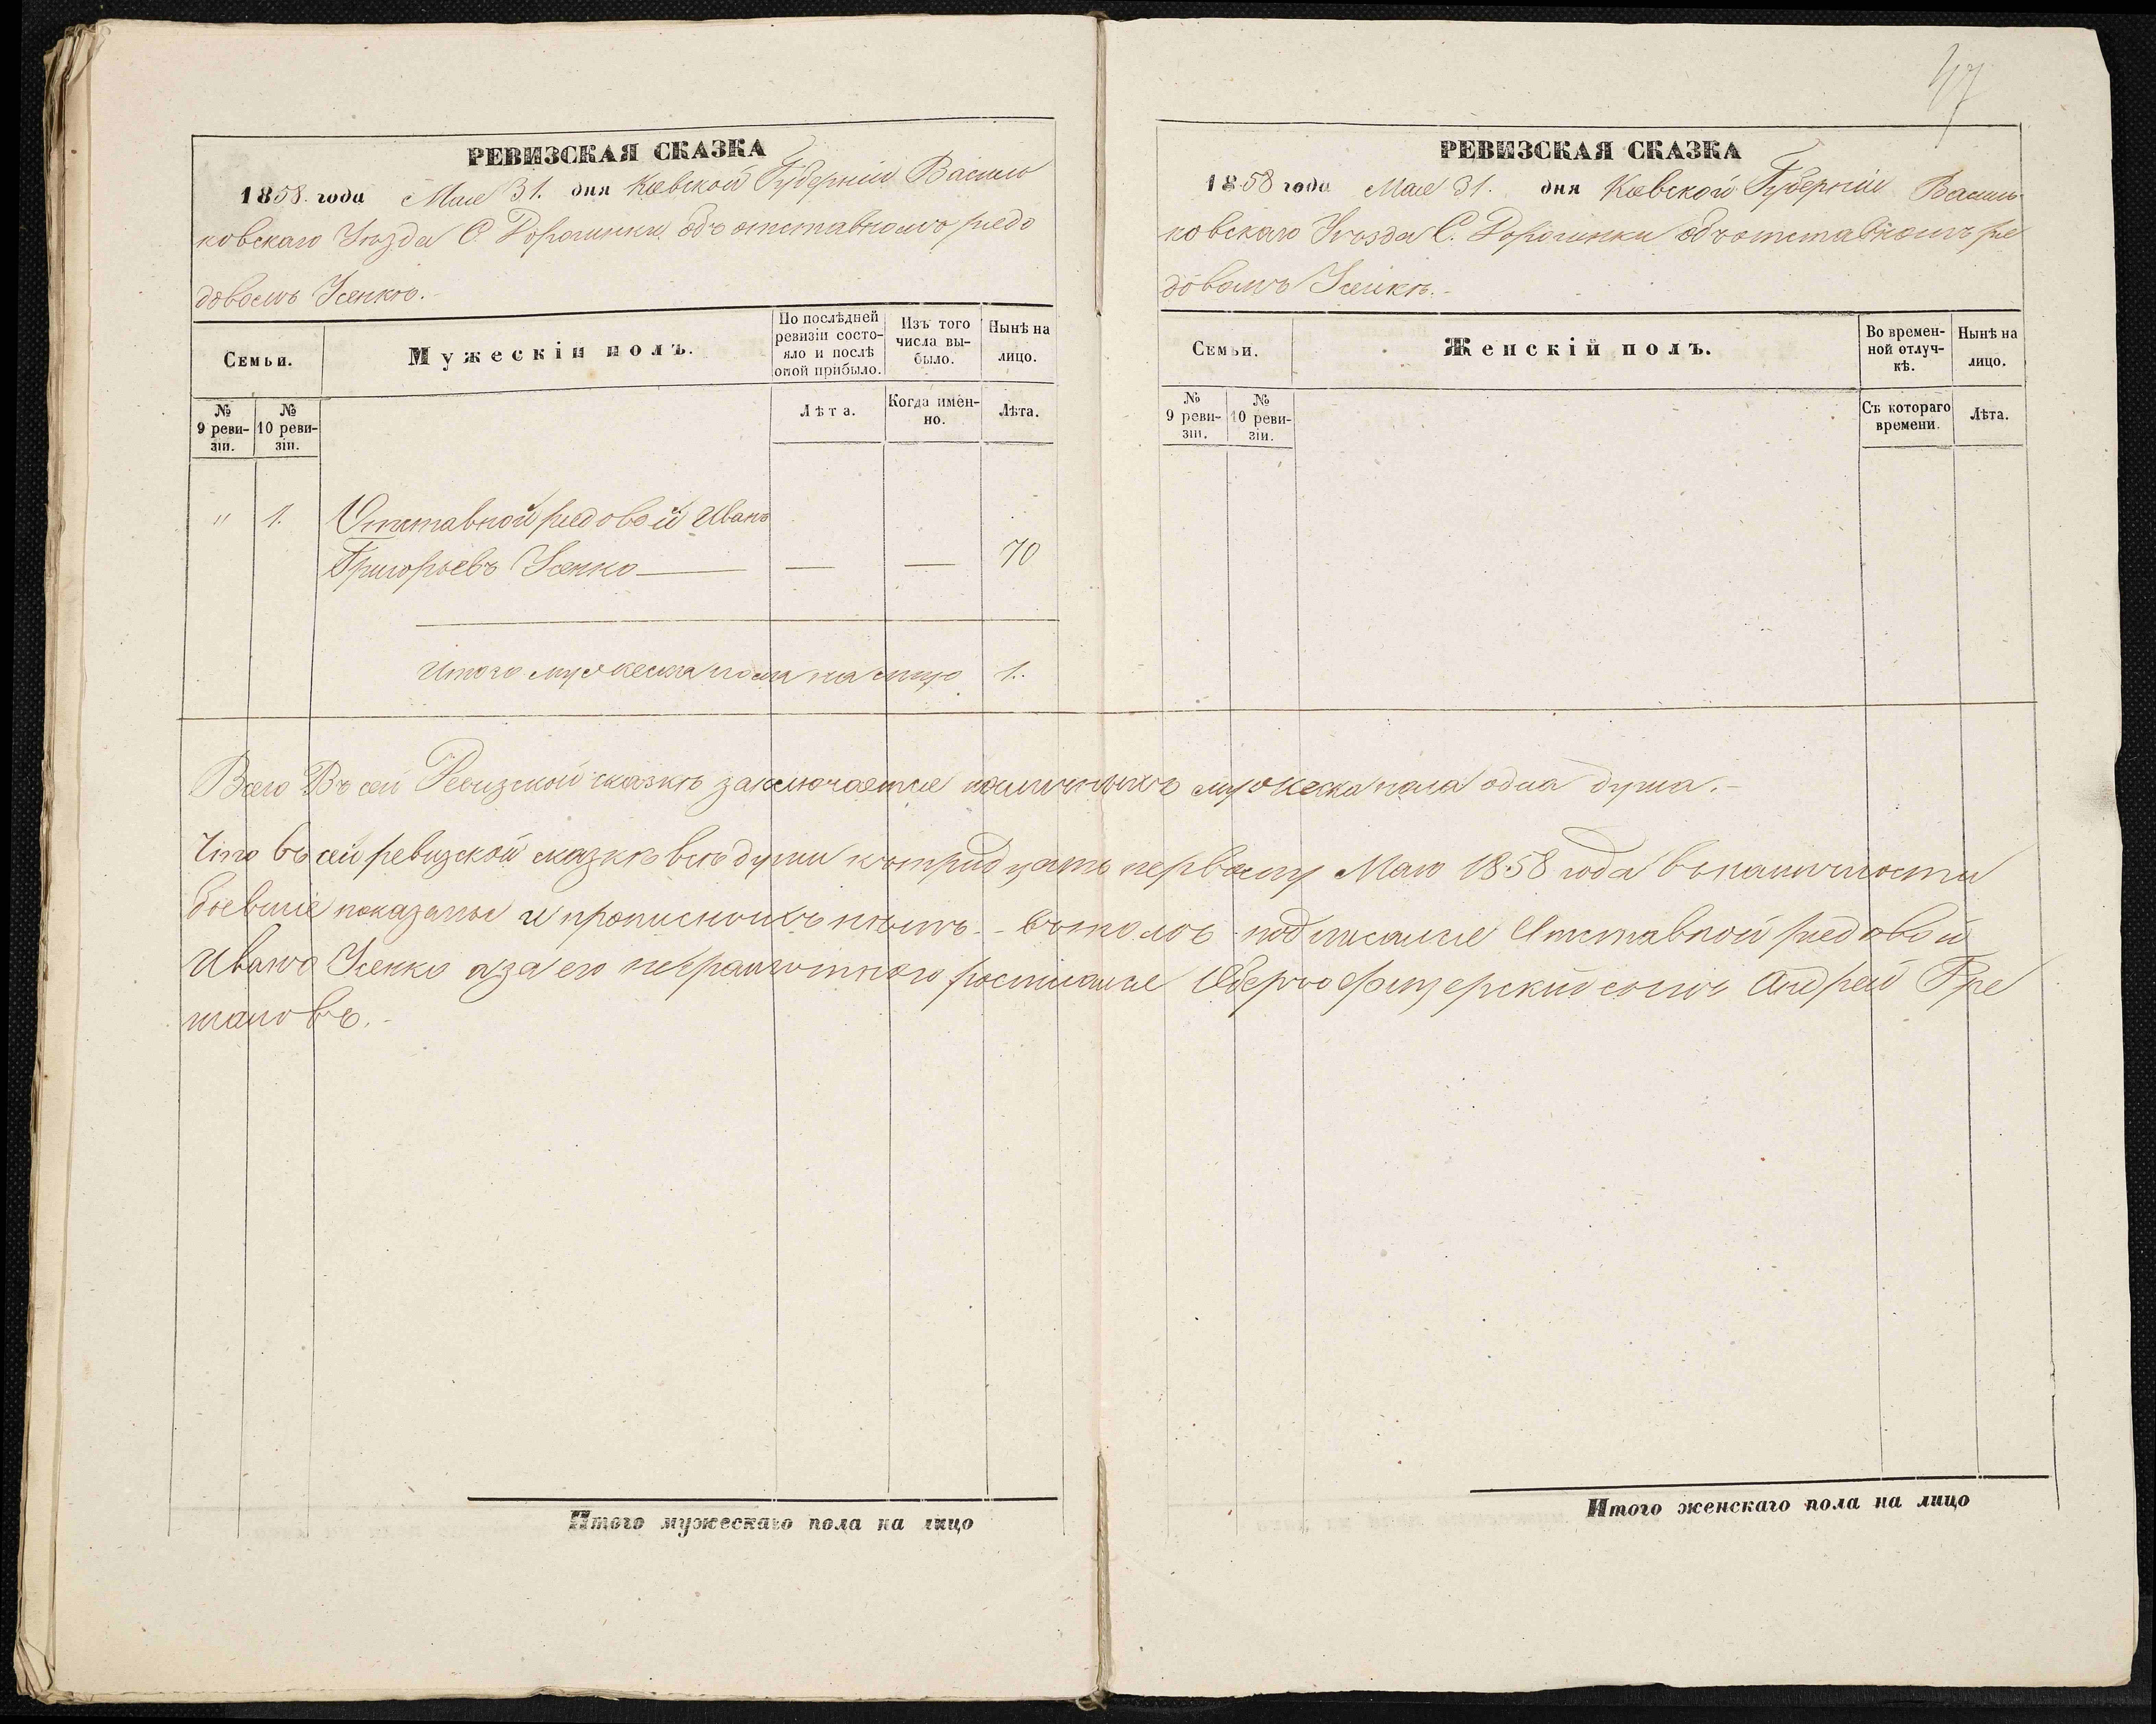 47
РЕВИЗСКАЯ СКАЗКА
1858. года Мая 31. дня Кіевской Губерніи Василь
ковскаго Уѣзда С. Дорогинки объ отставномъ рядо
довомъ Усенкѣ.-
Семьи.
Мужескій полъ.
По послѣдней ревизіи состо-
яло и послѣ оной прибыло.
Изъ того числа вы-
было.
Нынѣ на лицо.
№ 9 реви-
зіи.
№ 10 реви-
зіи.
Лѣта.
Когда имен-
но.
Лѣта.
" 1. Отставной рядовой Иванъ
Григорьевъ Усенко — — — 70
Итого мужеска пола на лицо 1.
РЕВИЗСКАЯ СКАЗКА
1858 года Мая 31. дня Кіевской Губерніи Василь-
ковскаго Уѣзда С. Дорогинки объ отставномъ ря
довомъ Усенкѣ.-
Семьи.
Женскій полъ.
Во времен-
ной отлуч-
кѣ.
Нынѣ на лицо.
№ 9 реви-
зіи.
№ 10 реви-
зіи.
Съ котораго времени.
Лѣта.
Всего Въ сей Ревизской сказкѣ заключается наличныхъ мужеска пола одна душа.-
Что въ сей ревизской сказкѣ всѣ души къ тридцать первому Маю 1858 года въ наличности
бывшіе показаны и прописныхъ нѣтъ - въ томъ подписался Отставной рядовой
Иванъ Усенко а за его неграмотного росписался Оберъ офицерскій сынъ Андрей
Итого мужескаго пола на лицо
Итого женскаго пола на лицо